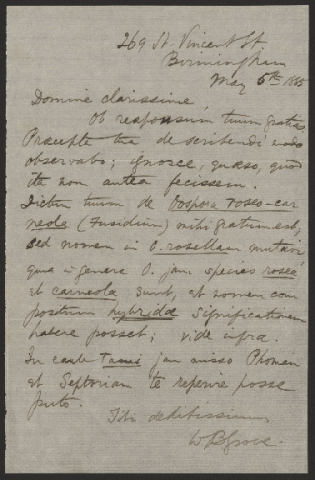 269 St. Vincent St
Birmingham
May 5th 1885
Domine clarissime
Ob responsum tuum gratias.
Præcepta tua de scribendi modo
observabo; ignosce, quæso, quod
ita non antea fecissem.
Dictum tuum de Oospora roseo-car
neola (Fusidium) mihi gratum est,
sed nomen in O. rosellam mutavi,
quia in genere O. jam species rosea
et carneola sunt, et nomen com
positum hybridæ significationem
habere posset; vide infra.
In caule Tami jam misso Phomam
et Septoriam te reperire posse
puto.
Tibi deditissimum
W B Grove.